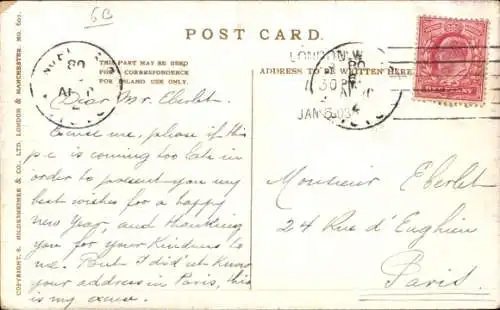 5B
POST CARD.
THIS PART MAY BE USED
FOR CORRESPONDENCE
FOR INLAND USE ONLY.
ADDRESS TO BE WRITTEN HERE
LONDON. W.
JAN 03
ONE PENNY
COPYRIGHT, S. HILDESHEIMER & CO., LTD. LONDON & MANCHESTER. NO.
Dear Mr. Eberlet.
Excuse me, please if this
p.c is coming too late in
order to present you my
best wishes for a happy
new Year, and thanking
you for your kindness to
me. But I did'nt know
your address in Paris, this
is my excuse.
Monsieur Eberlet
24 Rue d'Enghien
Paris.